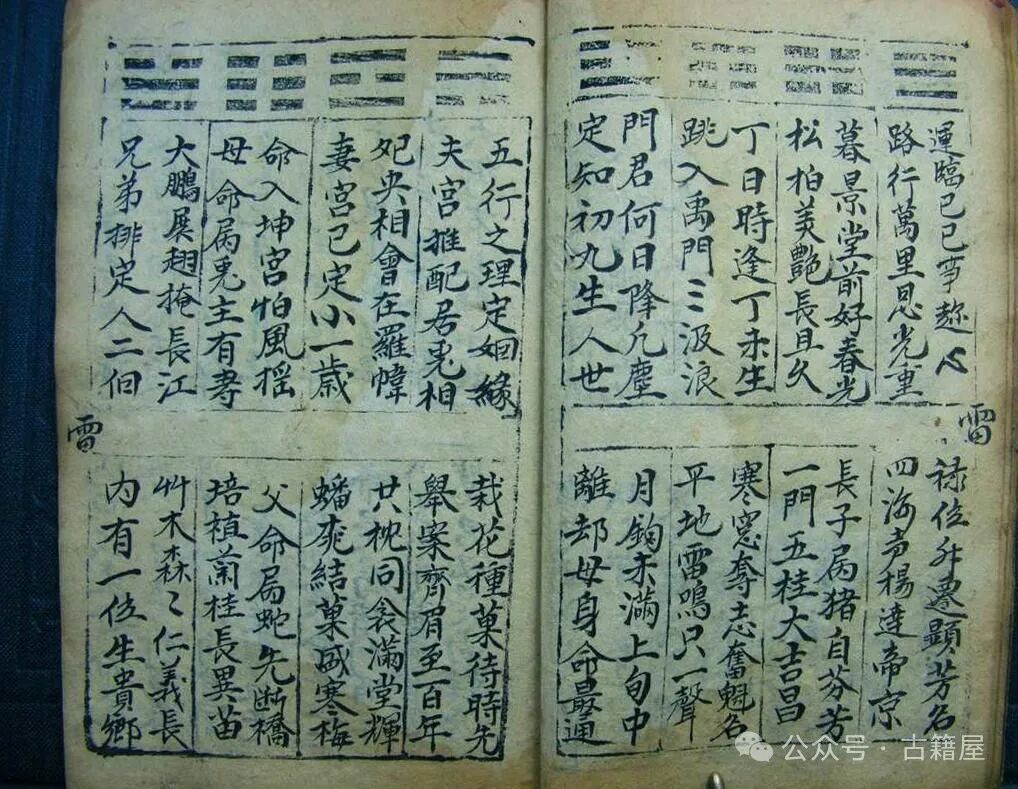 運臨己巳事趂心
路行萬里恩光重
暮景堂前好春光
松柏美艷長且久
丁日時逢丁未生
跳入禹門三汲浪
門君何日降凢塵
定知初九生人世
雷
禄位升遷顕芳名
四海声楊達帝京
長子屬猪自芬芳
一門五桂大吉昌
寒窓奪志奮魁名
平地雷鳴只一聲
月鈎未滿上旬中
離却母身命最通
五行之理定姻緣
夫宮推配居兎相
央相會在羅幃
妻宮已定小一歲
命入坤宮怕風摇
母命屬兎主有寿
大鵬展翅掩長江
兄弟排定人二伯
雷
栽花種菓待時先
舉案齊眉至百年
共枕同衾滿堂輝
蟠桃結菓感寒梅
父命屬蛇先断橋
培植蘭桂長異苗
艸木森々仁義長
内有一位生貴鄉
公众号·古籍屋